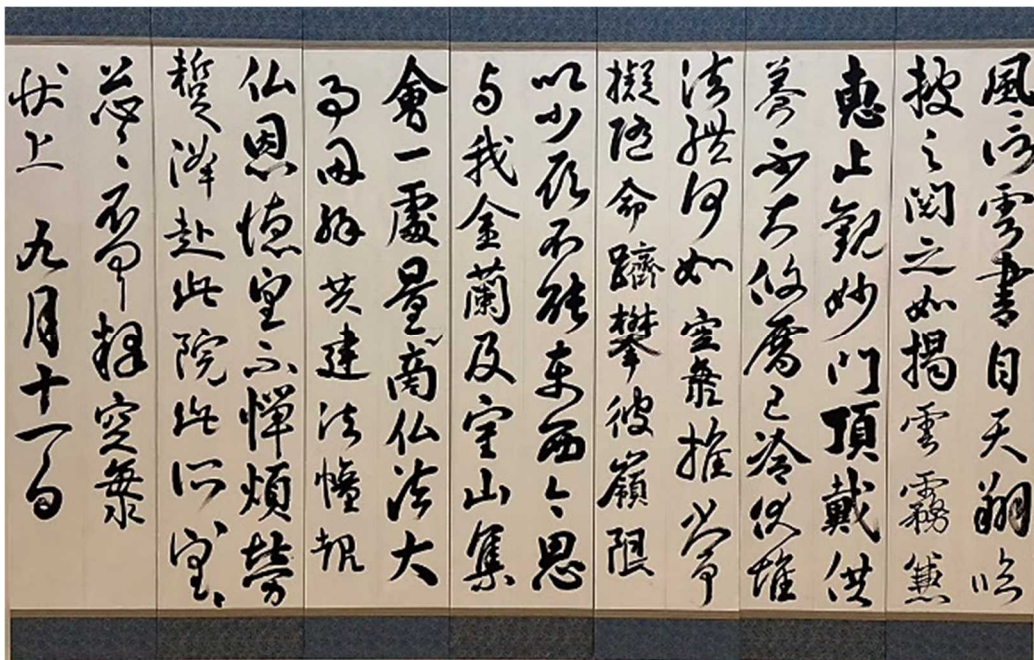 風信雲書自天翔臨
披之閲之如揭雲霧兼
恵止觀妙門頂戴供
養不知攸厝已冷伏惟
法體何如空海推常
擬隨命躋攀彼嶺限
以少願不能東西今思
与我金蘭及室山集
會一處量商仏法大
事因緣共建法幢報
仏恩徳望不憚煩勞
蹔降赴此院此所望々
忩々不具釋空海
状上 九月十一日